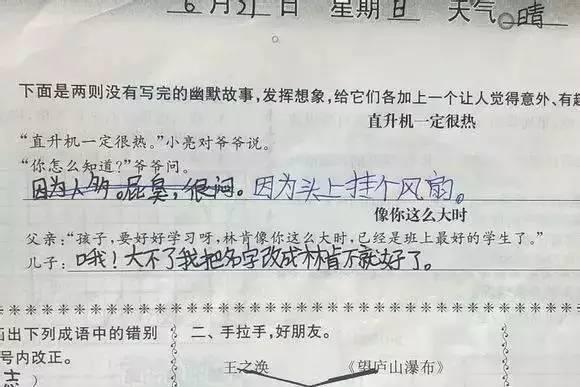 6月21日 星期日 天气 晴
下面是两则没有写完的幽默故事,发挥想象,给它们各加上一个让人觉得意外、有趣
直升机一定很热
“直升机一定很热。”小亮对爷爷说。
“你怎么知道?”爷爷问。
因为人多。屁臭,很闷。因为头上挂个风扇。
像你这么大时
父亲:“孩子,要好好学习呀,林肯像你这么大时,已经是班上最好的学生了。”
儿子:哦!大不了我把名字改成林肯不就好了。
出下列成语中的错别 二、手拉手,好朋友。
号内改正。 王之涣 《望庐山瀑布》